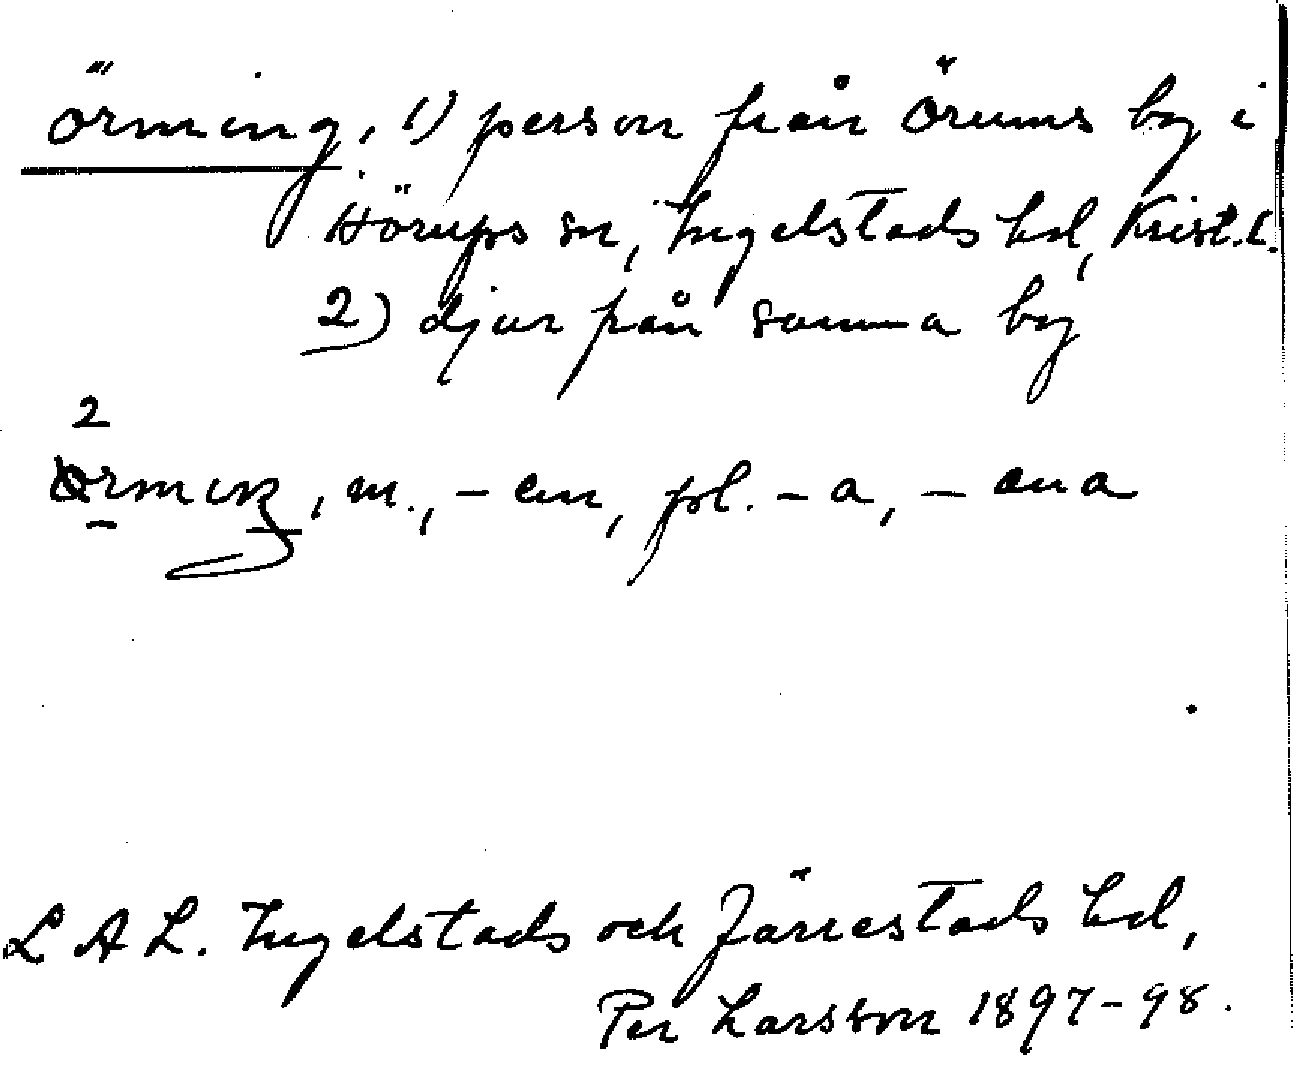 örming, 1) person från Örums by i
Hörups sn, Ingelstads hd, Krist. l.
2) djur från samma by
2
, m., – en, pl. – a, – ena
L A L. Ingelstads och Järrestads hd,
Per Larsson 1897–98.